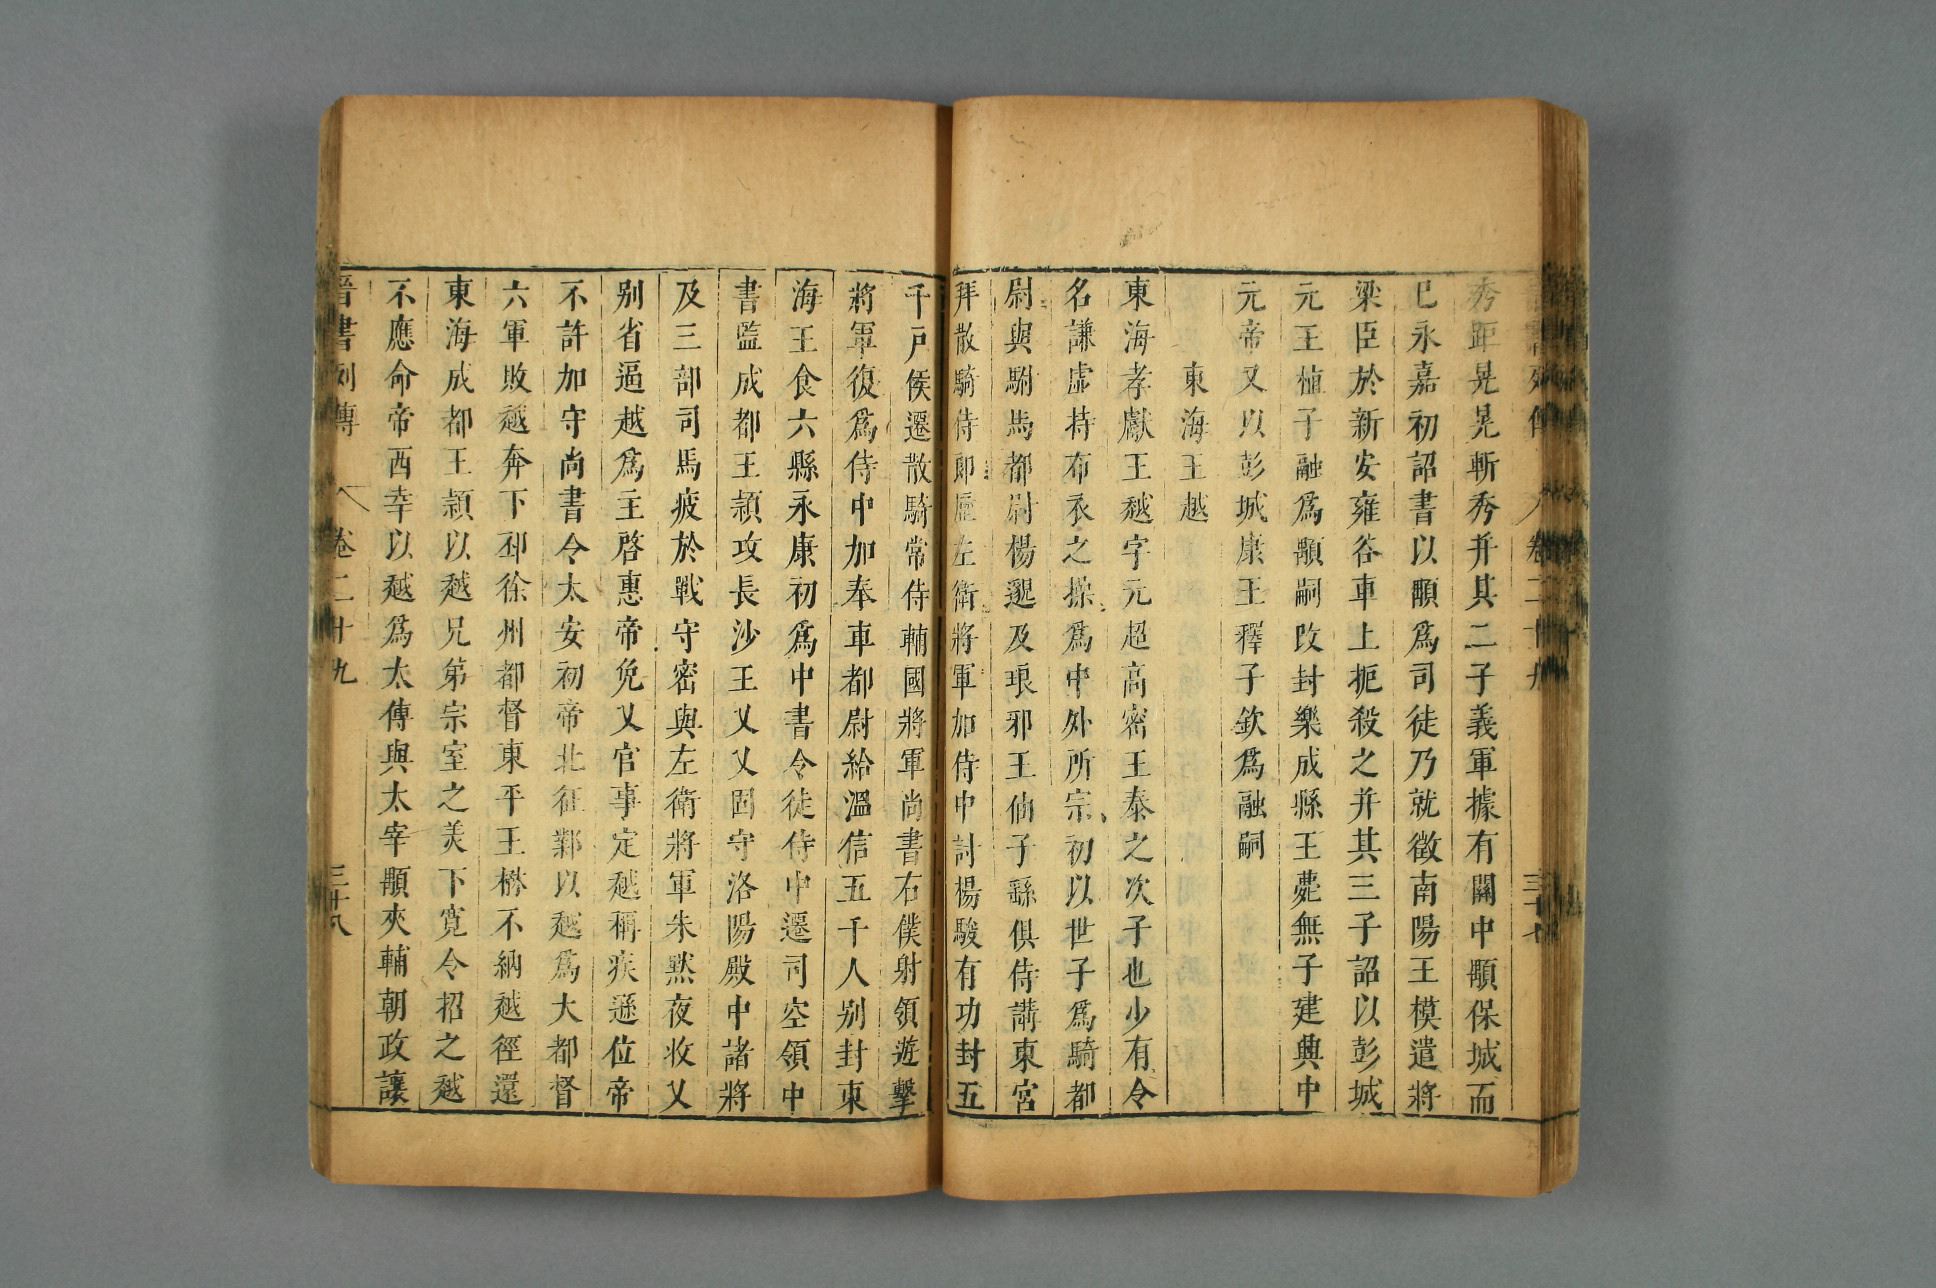 秀距晃晃斬秀并其二子義軍據有關中顒保城而
已永嘉初詔書以顒爲司徒乃就徵南陽王模遣將
梁臣於新安雍谷車上扼殺之并其三子詔以彭城
元王植子融爲顒嗣改封樂成縣王薨無子建興中
元帝又以彭城康王釋子欽爲融嗣
東海王越
東海孝獻王越字元超高密王泰之次子也少有令
名謙虛持布衣之操爲中外所宗初以世子爲騎都
尉與駙馬都尉楊邈及琅邪王伷子繇俱侍講東宮
拜散騎侍郎歷左衛將軍加侍中討楊駿有功封五
千戶侯遷散騎常侍輔國將軍尚書右僕射領遊擊
將軍復爲侍中加奉車都尉給溫信五千人别封東
海王食六縣永康初爲中書令徒侍中遷司空領中
書監成都王穎攻長沙王乂乂固守洛陽殿中諸將
及三部司馬疲於戰守密與左衛將軍朱默夜收乂
别省逼越爲主啓惠帝免乂官事定越稱疾遜位帝
不許加守尚書令太安初帝北征鄴以越爲大都督
六軍敗越奔下邳徐州都督東平王楙不納越徑還
東海成都王穎以越兄弟宗室之美下寬令招之越
不應命帝西幸以越爲太傅與太宰顒夾輔朝政讓
晉書列傳 卷二十九 三十八